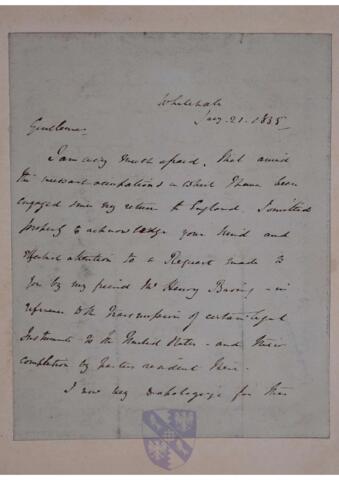 Whitehall
Jany. 21. 1835
Gentlemen
I am very much afraid, that amid
the incessant occupations in which I have been
engaged since my return to England, I omitted
properly to acknowledge your kind and
effectual attention to a Request made to
you by my friend Mr Henry Baring - in
reference to the transmission of certain legal
Instruments to the United States - and their
completion by parties resident there.
I now beg to apologize for this